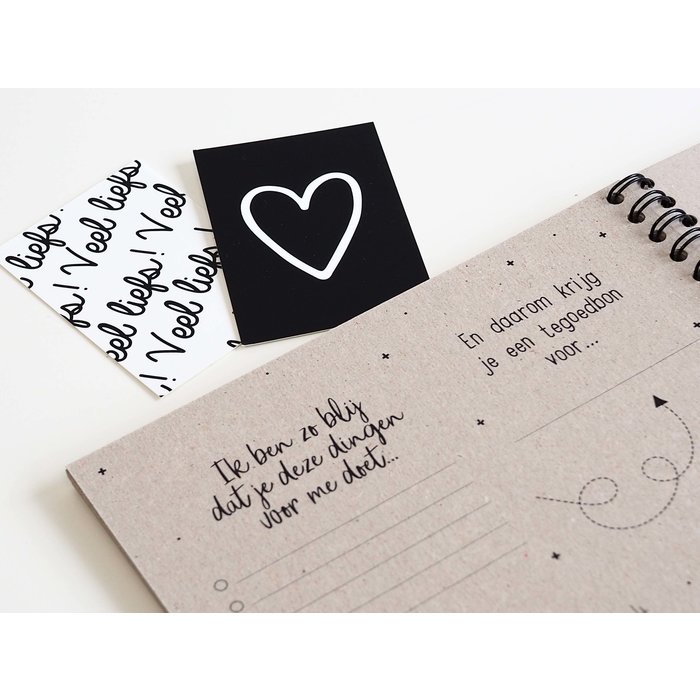 liefs
fs! Veel liefs
eel liefs! Veel
! Veel liefs!
Ik ben zo blij
dat je deze dingen
voor me doet...
En daarom krijg
je een tegoedbon
voor...